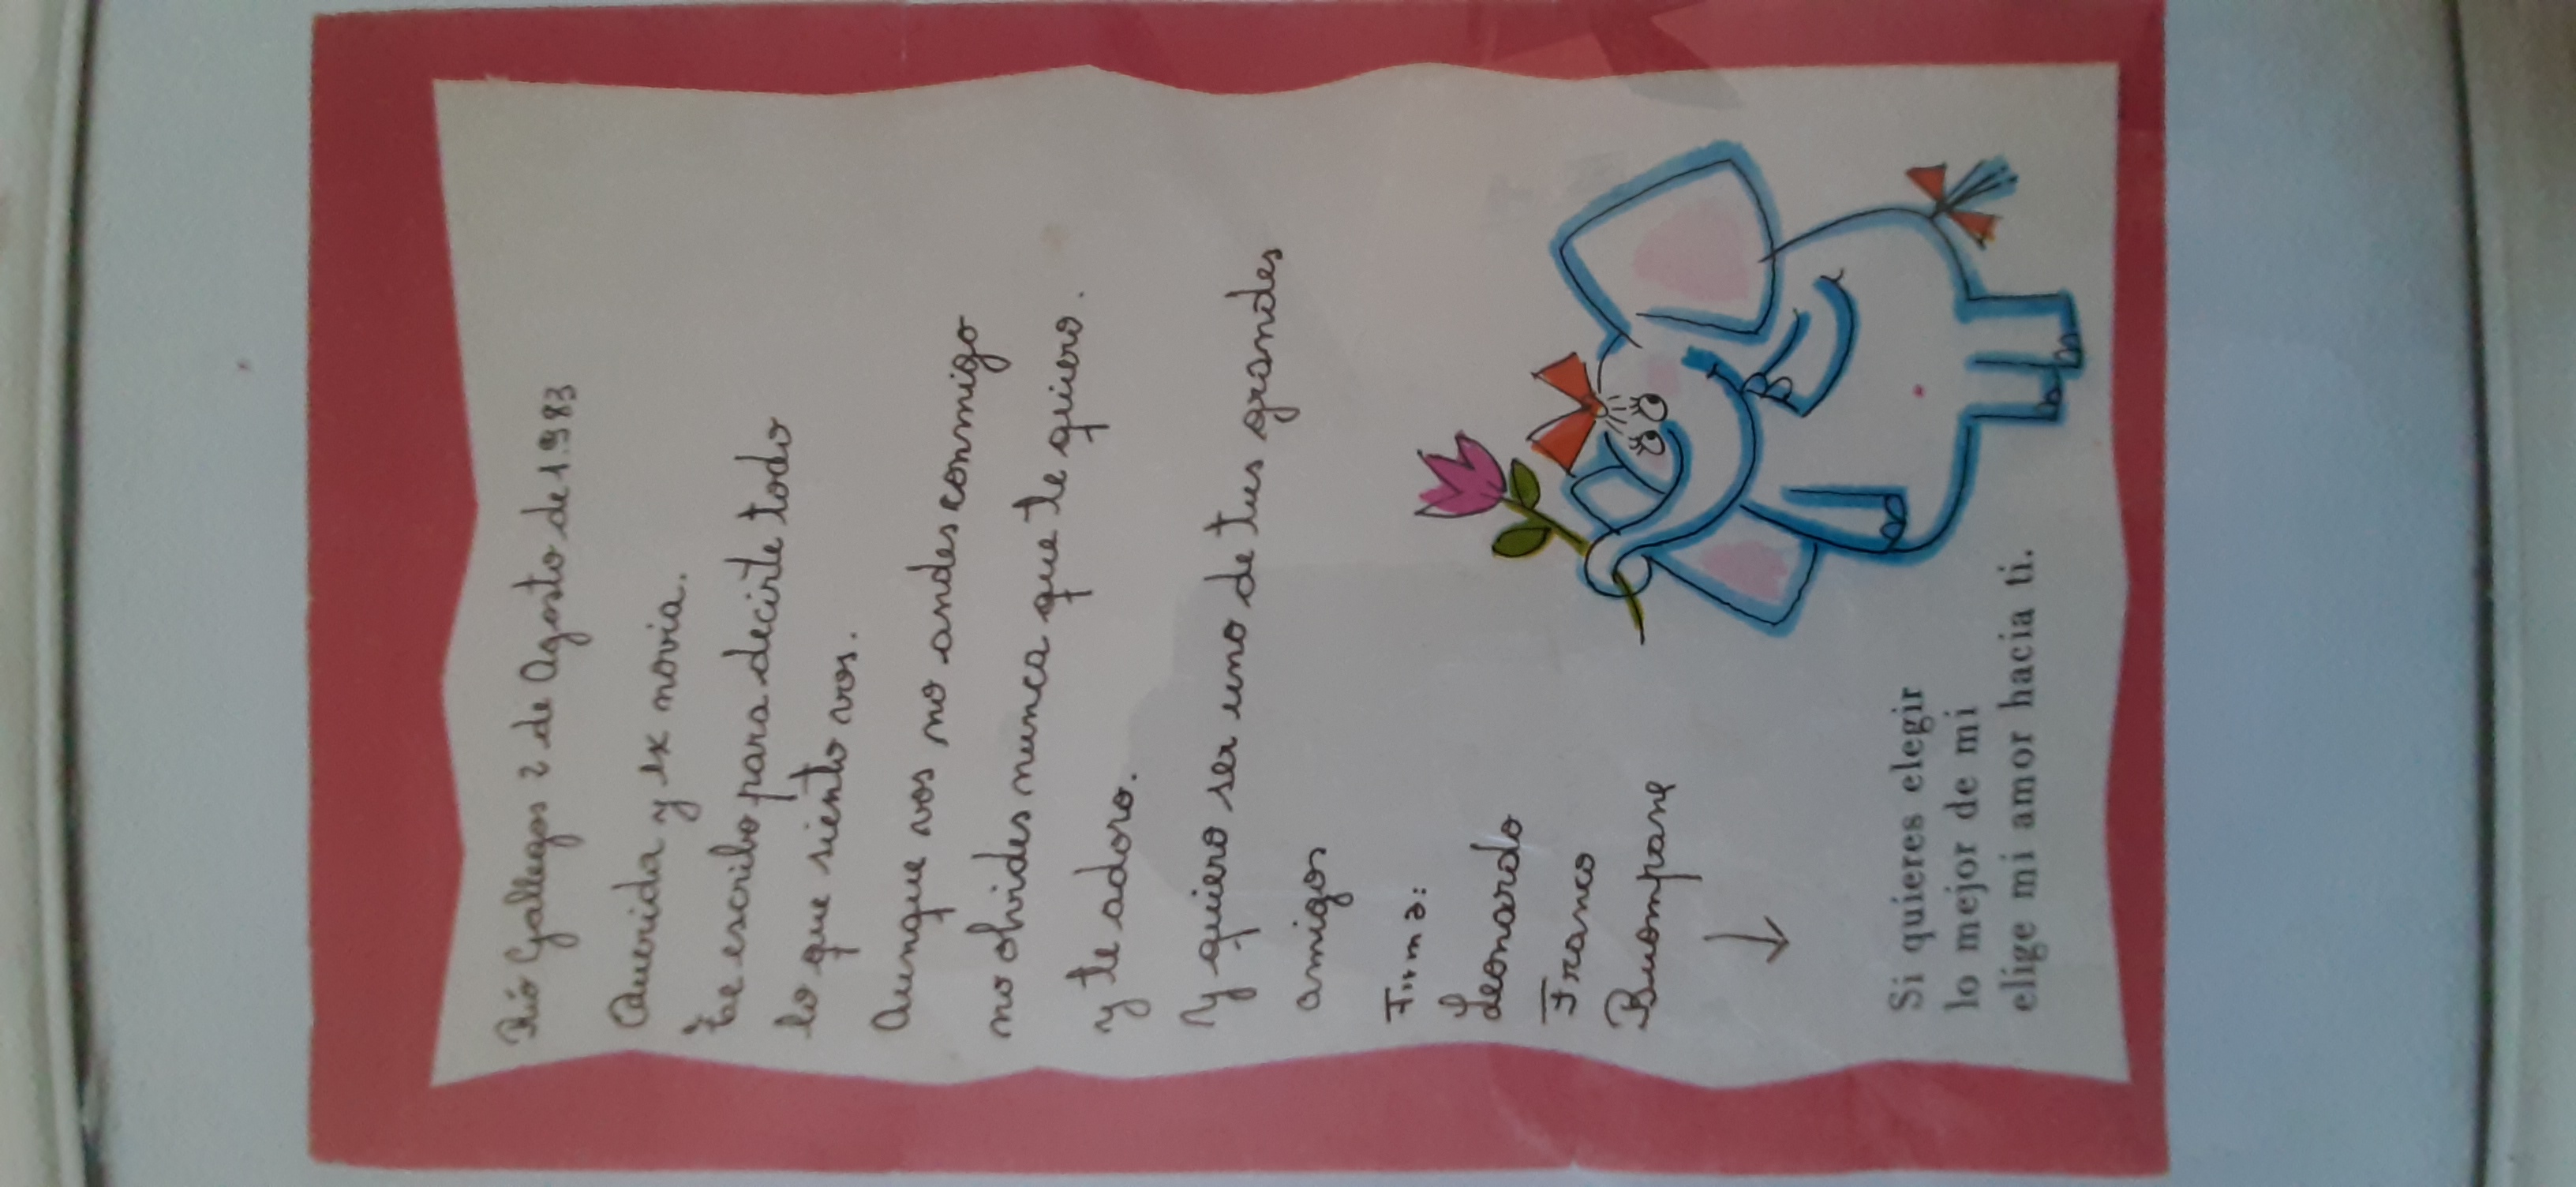 Rió Gallegos 2 de Agosto de 1.983
Querida y ex novia.
Te escribo para decirte todo
lo que siento vos.
Aunque vos no andes conmigo
no olvides nunca que te quiero.
y te adoro.
Y quiero ser uno de tus grandes
amigos
Firma:
Leonardo
Franco
Buompane
Si quieres elegir
lo mejor de mi
elige mi amor hacia ti.